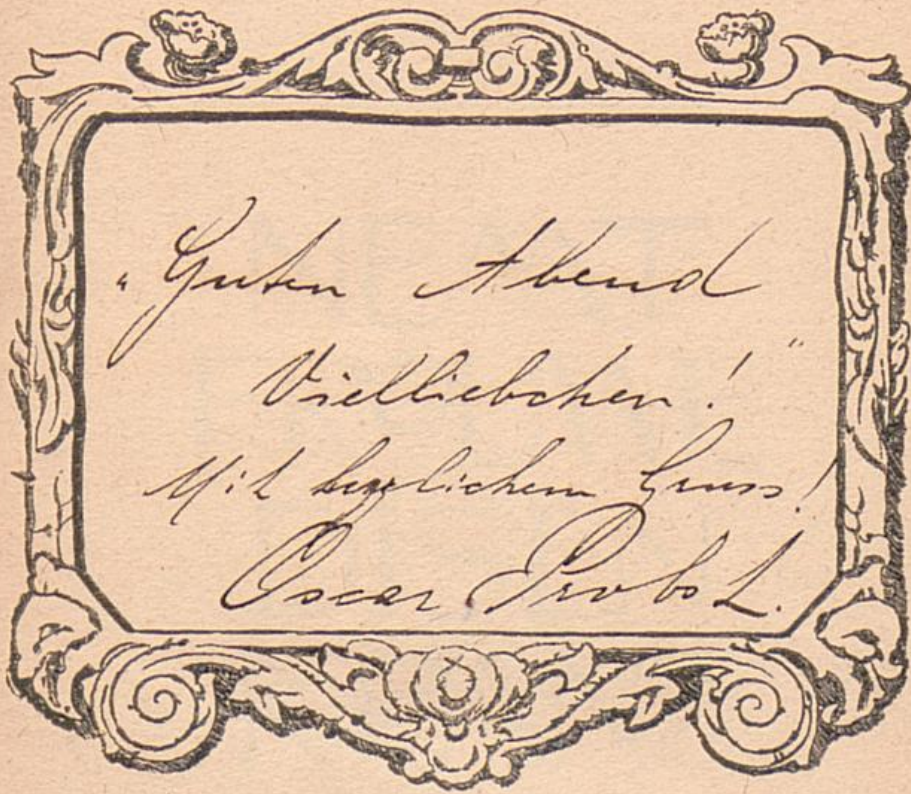 „Guten Abend
Vielliebchen!"
Mit herzlichem Gruss!
Oscar Probst.